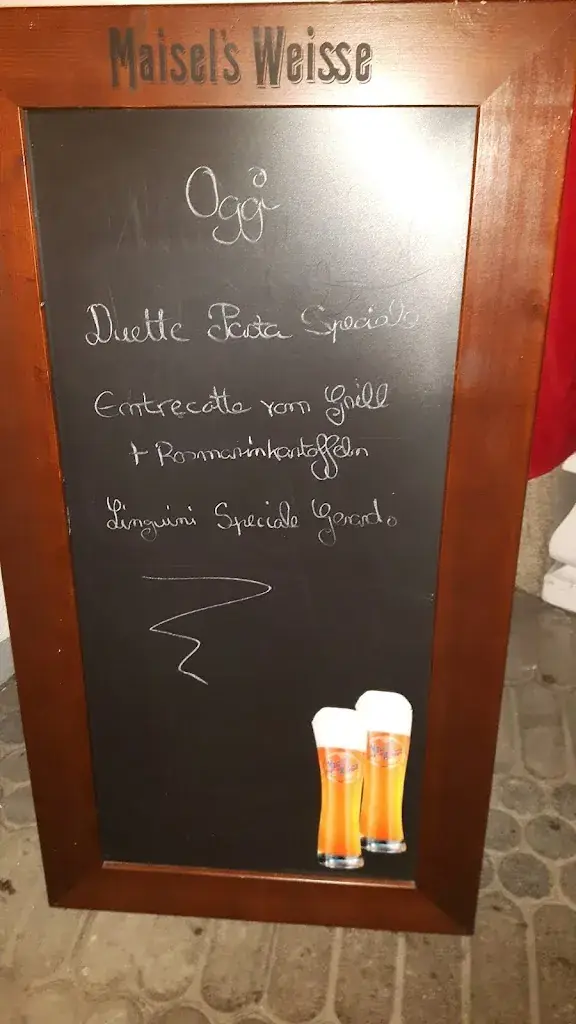 Maisel's Weisse
Oggi
Duette Pasta Speciale
Entrecotte vom Grill
+ Rosmarinkartoffeln
Linguini Speciale Gerardo